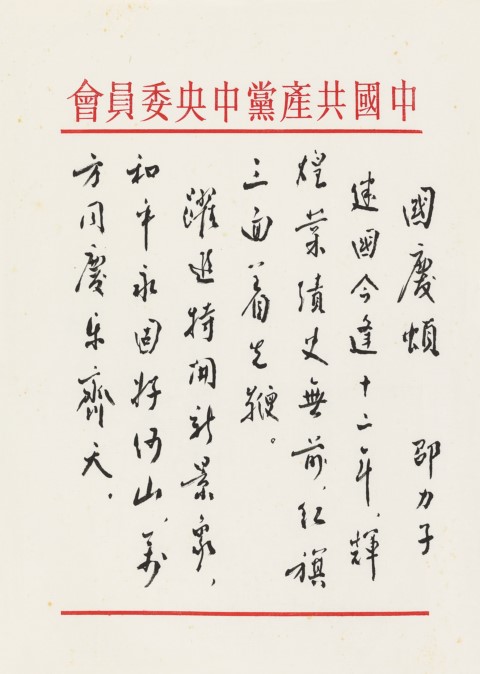 中國共產黨中央委員會
國慶頌　邵力子
建國今逢十二年，輝
煌業績史無前，紅旗
三面着先鞭。
躍進特開新景象，
和平永固好河山，萬
方同慶乐齊天。